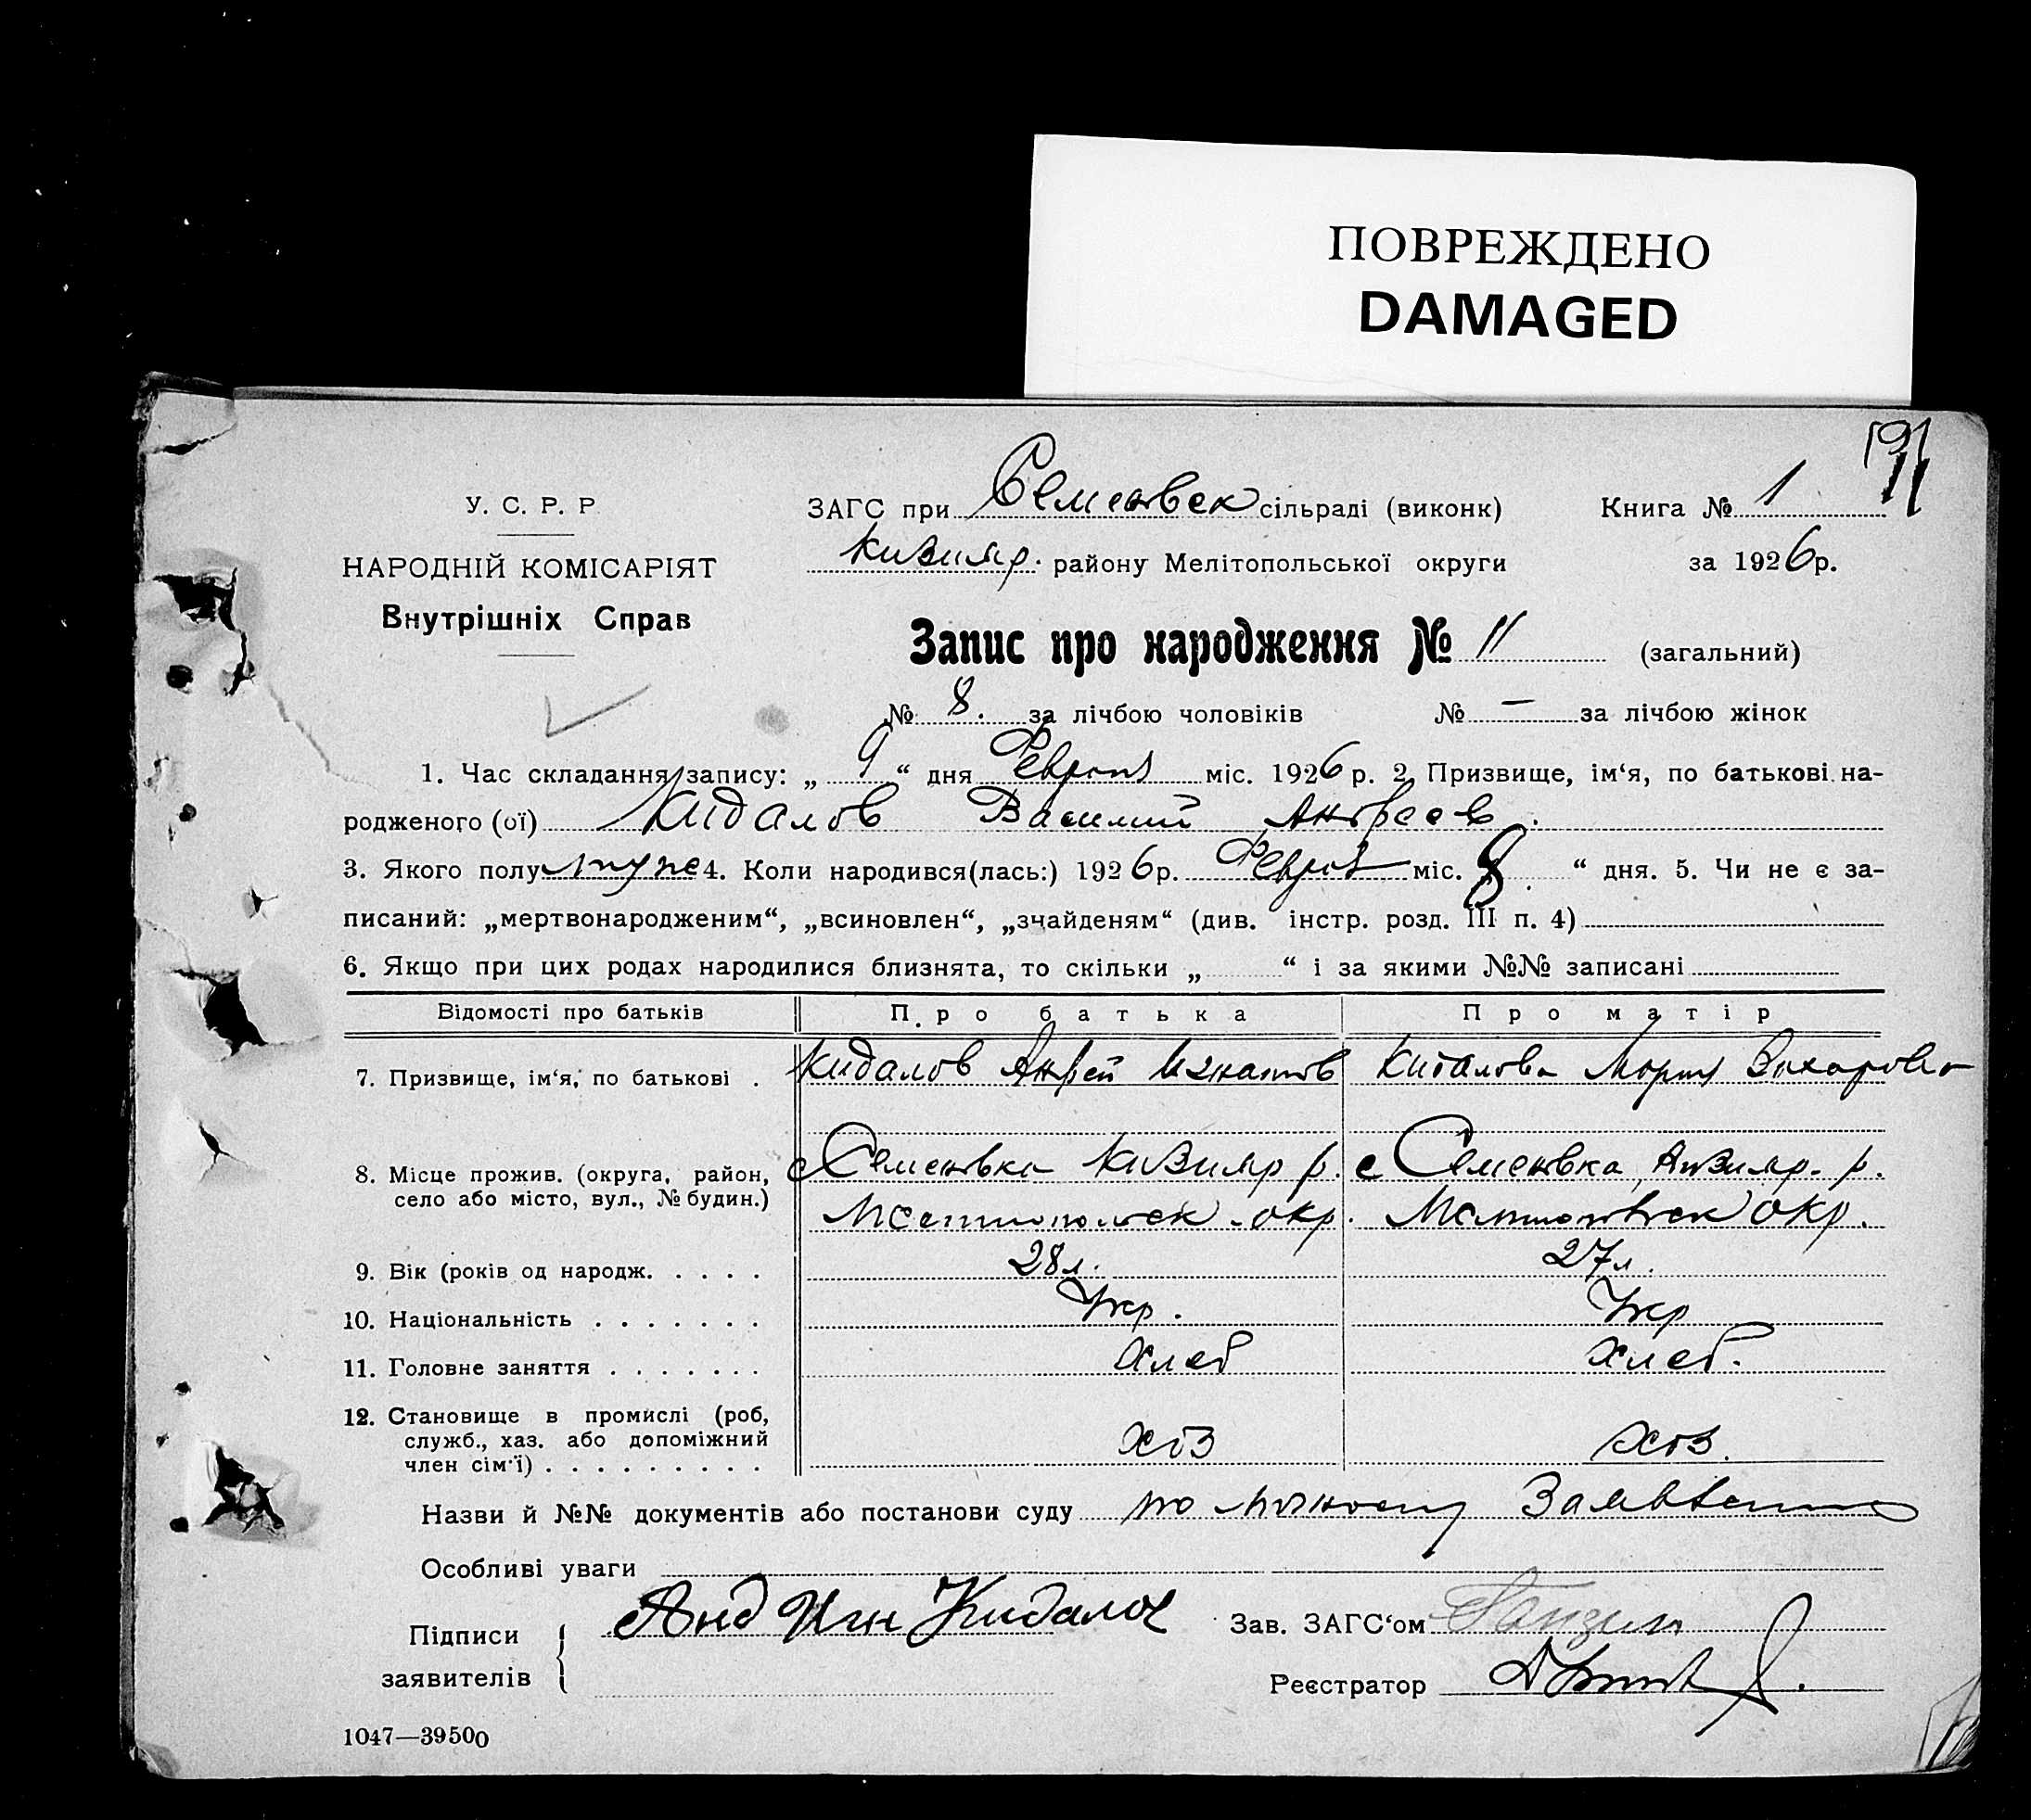 ПОВРЕЖДЕНО
DAMAGED
У. С. Р. Р
НАРОДНІЙ КОМІСАРІЯТ
Внутрішніх Справ
ЗАГС при Семеновск сільраді (виконк)
Кизияр. району Мелітопольської округи
Книга № 1
за 1926 р.
Запис про народження № 11 (загальний)
№ 8. за лічбою чоловіків № — за лічбою жінок
1. Час складання запису: „ 9 “ дня Февраля міс. 1926 р. 2. Призвище, ім‘я, по батькові на-
родженого (ої) Кидалов Василий Андреев.
3. Якого полу муже 4. Коли народився(лась:) 1926 р. Феврал міс. „ 8. “ дня. 5. Чи не є за-
писаний: „мертвонародженим“, „всиновлен“, „зчайденям“ (див. інстр. розд. III п. 4)
6. Якщо при цих родах народилися близнята, то скільки „ “ і за якими №№ записані
Відомості про батьків Про батька Про матір
7. Призвище, ім‘я, по батькові . Кидалов Андрей Игнатов Кидалова Мария Захаровна
8. Місце прожив. (округа, район, с Семеновка Кизияр р. с Семеновка Кизияр. р.
село або місто, вул., № будин.) Мелитопольск. окр. Мелитопольск окр.
9. Вік (років од народж. . . . . 28 л. 27 л.
10. Національність . . . . . . . Укр. Укр
11. Головне заняття . . . . . . . Хлеб Хлеб.
12. Становище в промислі (роб,
служб., хаз. або допоміжний
член сім‘ї) . . . . . . . . . хоз хоз.
Назви й №№ документів або постанови суду по личному Заявлению
Особливі уваги
Підписи
заявителів
Анд Игн Кидалов
Зав. ЗАГС‘ом
Реєстратор
1047—39500